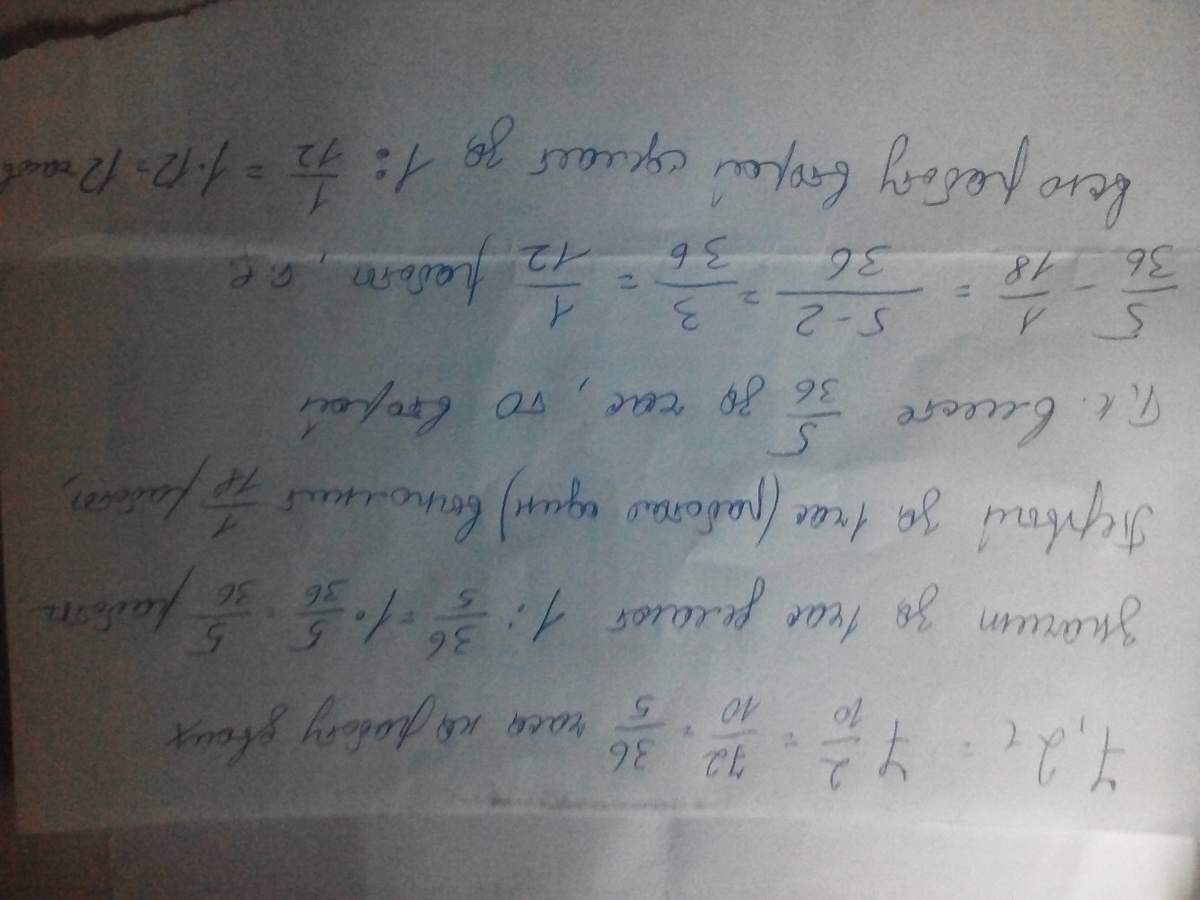 7,2 ч = 7 2/10 = 72/10 = 36/5 часа на работу двоих
значит за 1 час делают 1 : 36/5 = 1 · 5/36 = 5/36 работы
Первый за 1 час (работая один) выполнит 1/18 работы,
Т.к. вместе 5/36 за час, то второй
5/36 - 1/18 = 5-2/36 = 3/36 = 1/12 работы, т.е
всю работу второй сделает за 1 : 1/12 = 1·12 = 12 часов